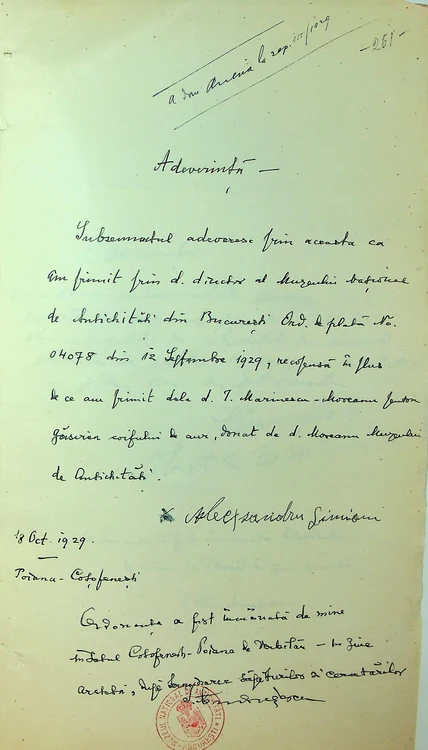 a dom
la rap. /1929
-261-
Adeverință —
Subsemnatul adeveresc prin aceasta că
am primit prin d. director al Muzeului Național
de Antichități din București Ord. de plată No.
04078 din 12 Septembre 1929, recopensă în plus
de ce am primit dela d. I. Marinescu-Moreanu pentru
găsirea coifului de aur, donat de d. Moreanu Muzeului
de Antichități.
Alecsandru Simion
18 Oct. 1929.
Poiana-Coțofenești
Ordonanța a fost înmânată de mine
în satul Coțofenești-Poiana de Varbilău – în ziua
arătată, după terminarea săpăturilor și cercetărilor
MUZEUL NAȚIONAL DE ANTICHITĂȚI
BUCUREȘTI